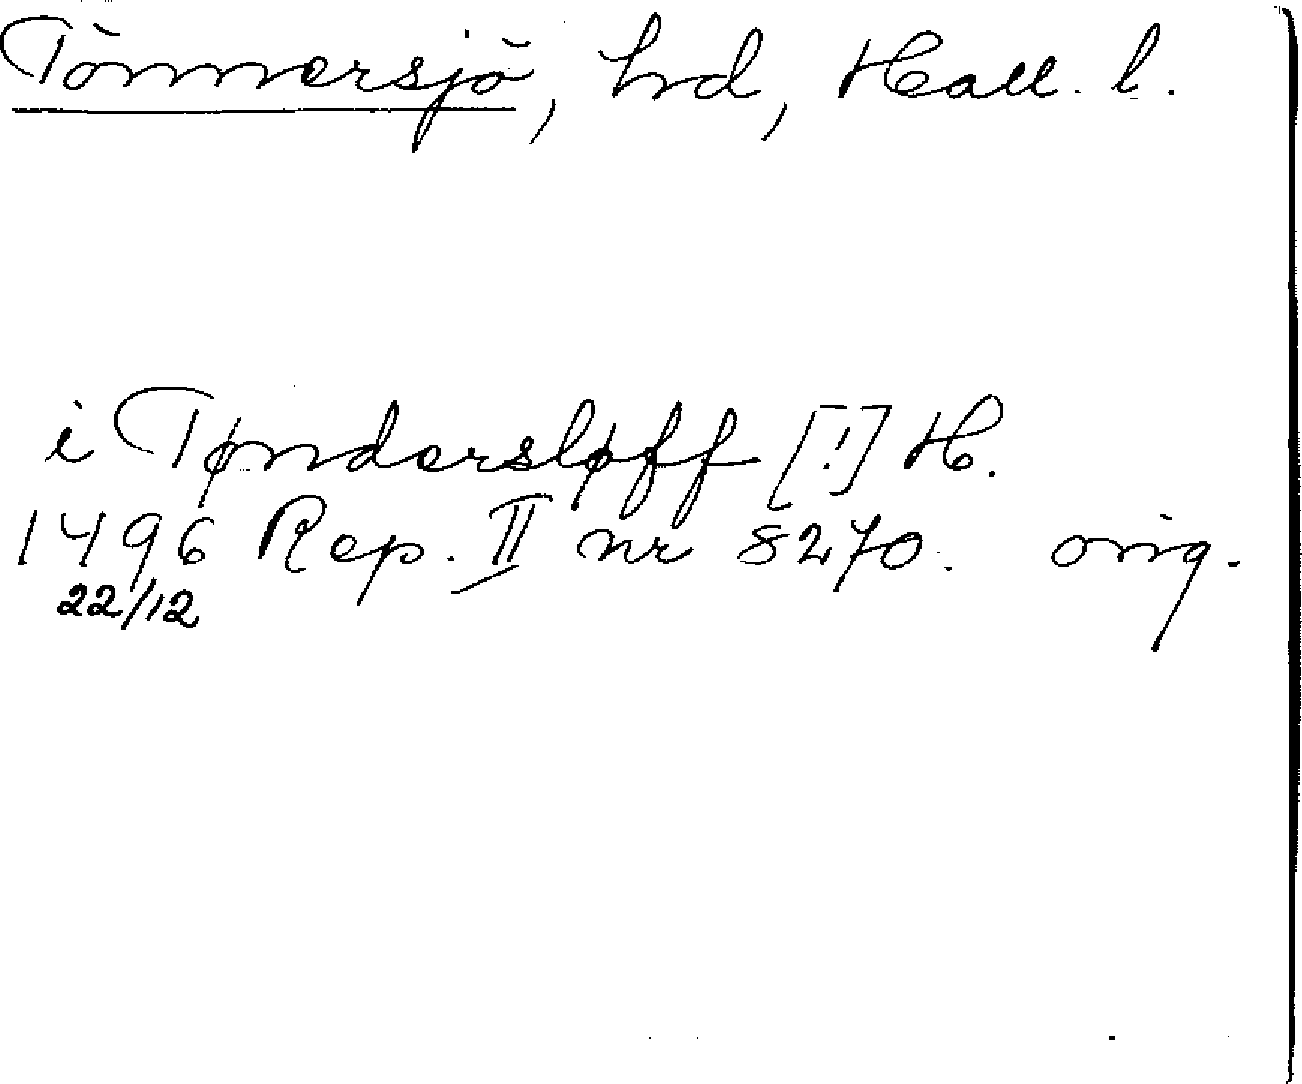 Tönnersjö, hd, Hall. l.
i Tøndersløff [!] H.
1496 Rep. II nr 8270. orig.
22/12